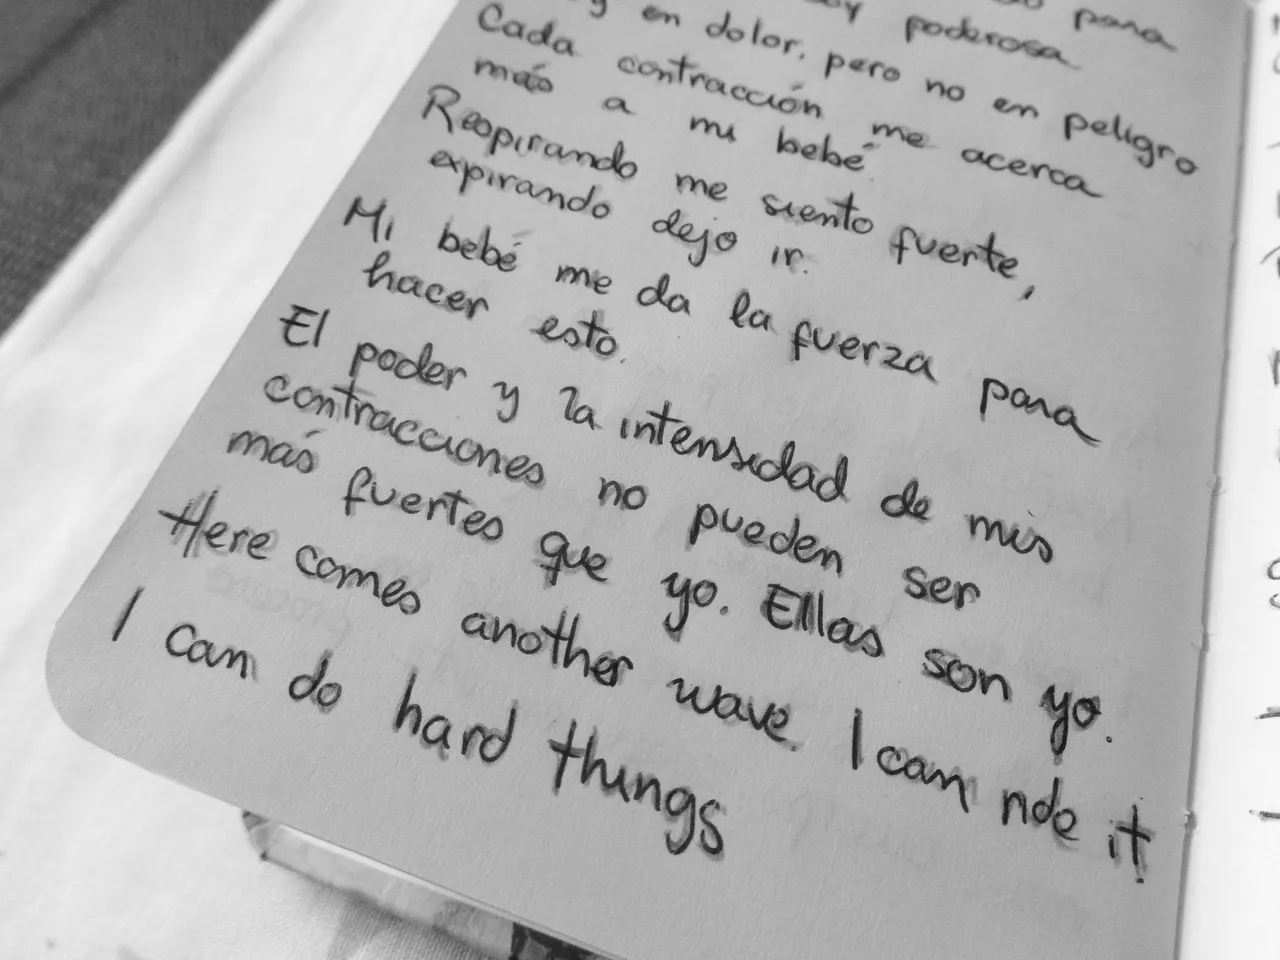 para
poderosa
y en dolor, pero no en peligro
Cada contracción me acerca
más a mi bebé
Respirando me siento fuerte,
expirando dejo ir.
Mi bebé me da la fuerza para
hacer esto.
El poder y la intensidad de mis
contracciones no pueden ser
más fuertes que yo. Ellas son yo.
Here comes another wave. I can ride it
I can do hard things